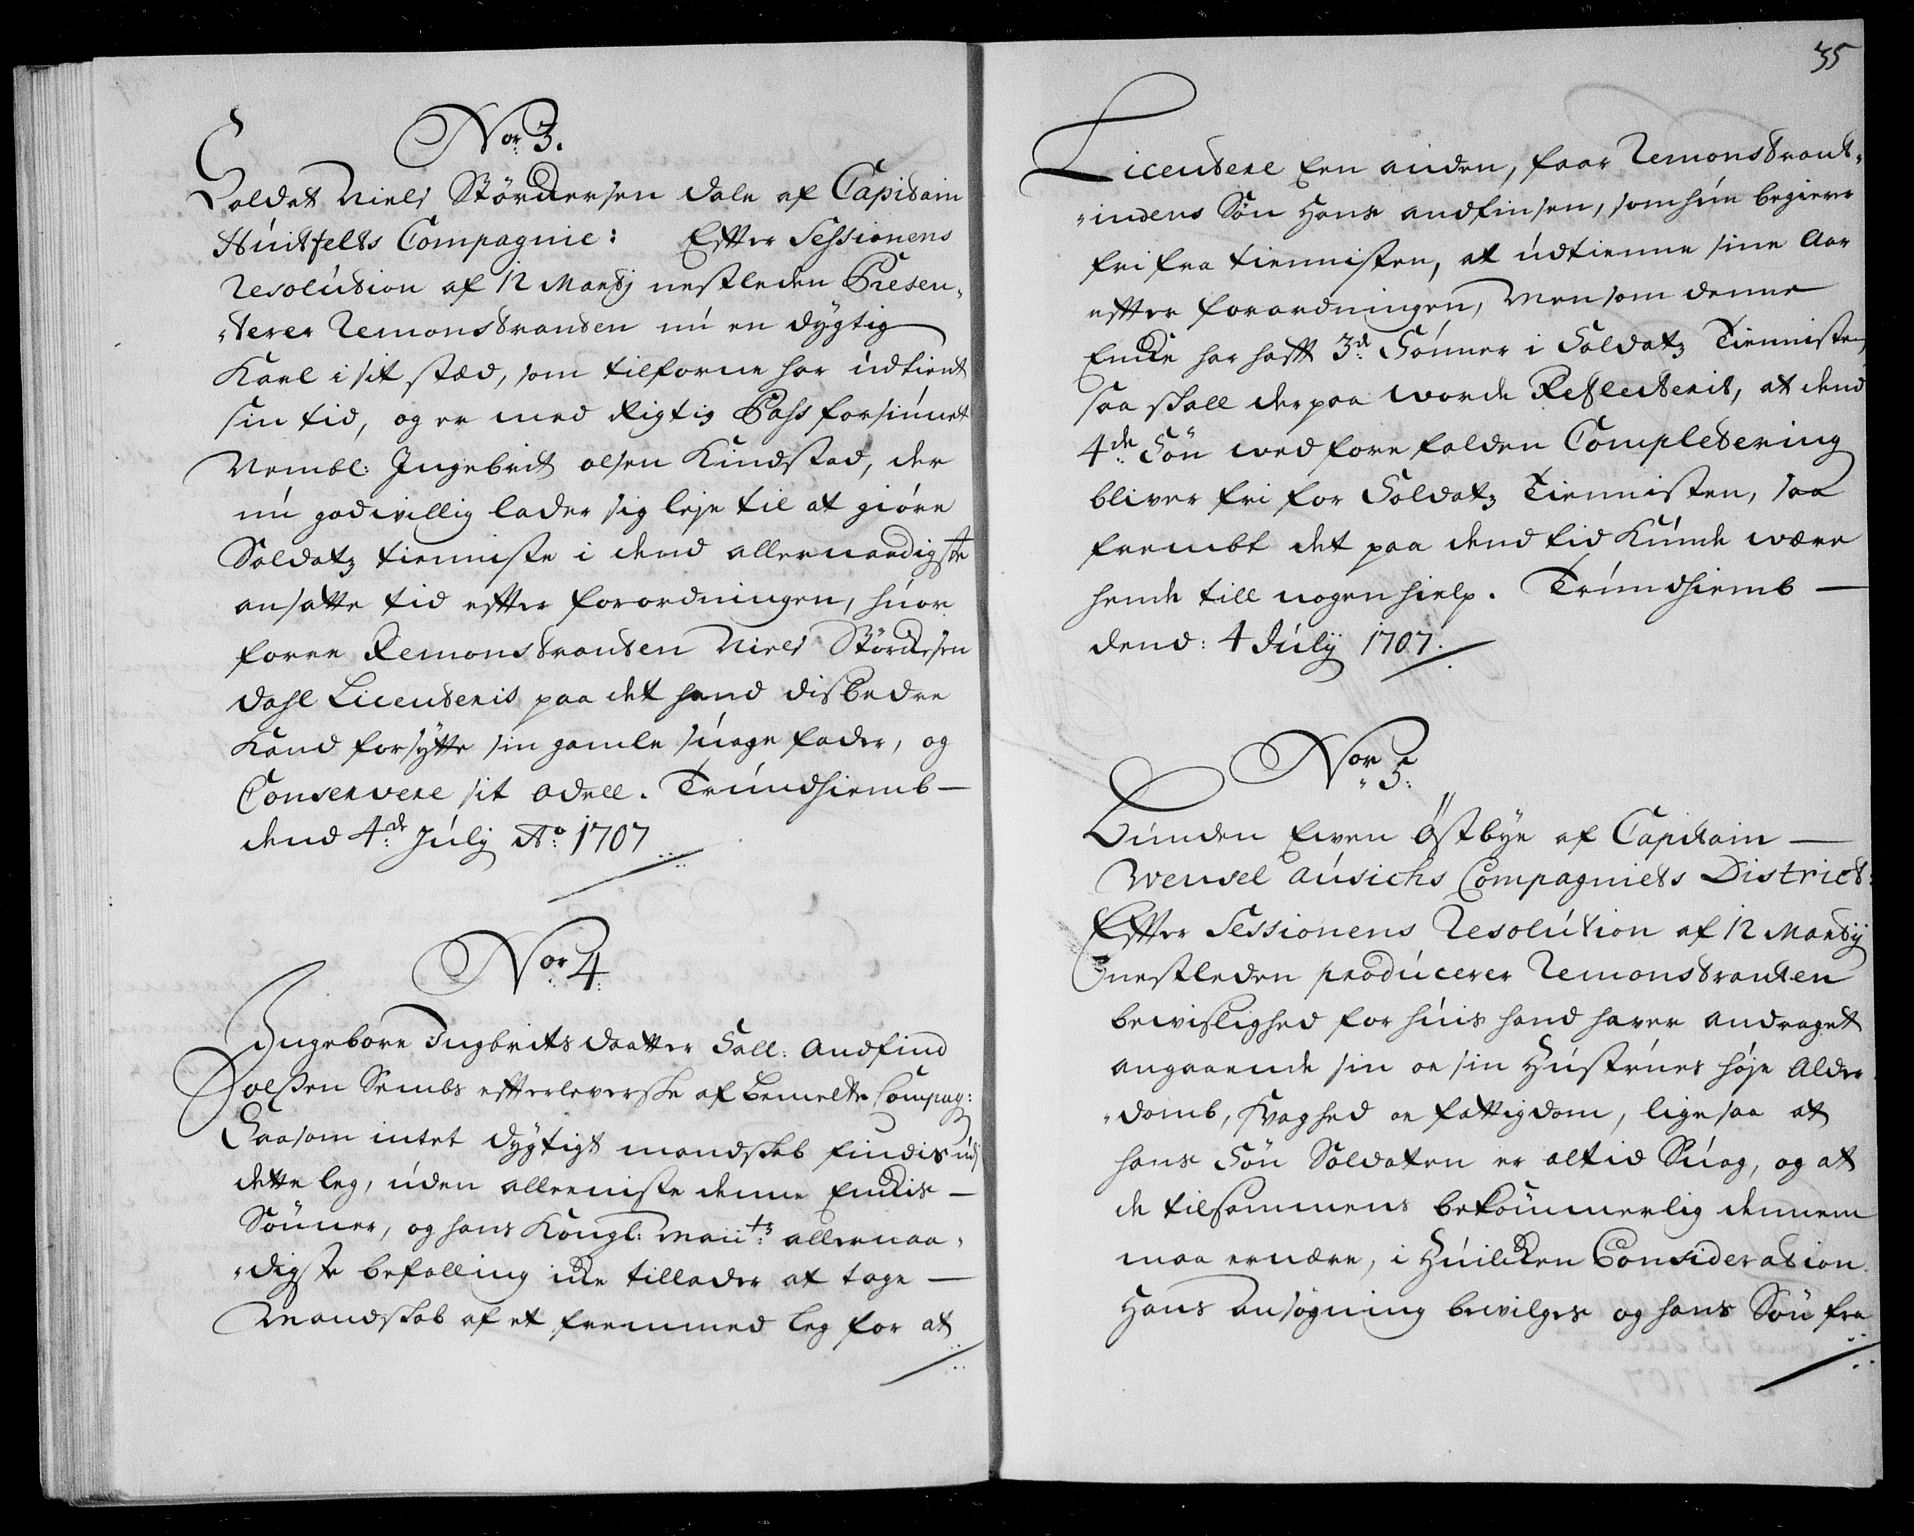 Nor: 3.
Soldat Niels Störckersen Dale af Capitain
Huitfelts Compagnie: Efter Sessionens
Resolution af 12 Martij nestleden Presen„
„terer Remonstranten nu en dygtig
Karl i sit stæd, som tilforne har udtient
sin tid, og er med Rigtig Pass forsiunet
Nembl: Ingebrit olsen Kindstad, der
nu godvillig lader sig leje til at giöre
Soldatz tienniste i dend allernaadigste
ansatte tid effter forordningen, huor
forre Remonstranten Niels Störckersen
Dahl Licenteris paa det hand disbedre
Kand forsytte sin gamle suage fader, og
Conservere sit odell. Trundhiemb —
dend 4de: July Ao: 1707
Nor: 4
Ingeborre Ingbrits daatter Sall: Andfind
Joessen Sembs effterleverske af bemelte Compag:
Saasom intet dygtigt mandskab findis udj
dette leg, uden alleeniste denne Enckis —
Sönner, og hans Kongl: Maiitz: allernaa„
„digste befalling icke tillader at tage —
Mandskab af et fremmed leg for at
35
Licentere Een anden, faar Remonstrant„
„indens Søn Hans Andfinsen, som hun begierer
fri fra tiennisten, at udtienne sine Aar
effter forordningen, Men som denne
Encke har hafft 3de: Sönner i Soldatz Tiennisten,
saa skall derpaa worde Reflecterit, at dend
4de: Søn wed forrefalden Completering
bliver fri for Soldatz Tiennisten, saa
frembt det paa dend tid Kunde være
hende till nogen hielp. Trundhiemb —
dend: 4 Julij 1707.
Nor 5:
Bunden Ewen Östbye af Capitain —
Wensel Ausichs Compagniets District:
Effter Sessionens Resolution af 12 Martij
nestleden producerer Remonstranten
bewislighed for huis hand haver andraget
angaaende sin oe sin Hustrues höje Alder
„domb, Svaghed oe fattigdom, ligesaa at
hans Sön Soldaten er altid Suag, og at
de tilsammens bekömmerlig dennem
maa ernære, i Huilcken Consideration
Hans Ansögning bevilges og hans Sön fra